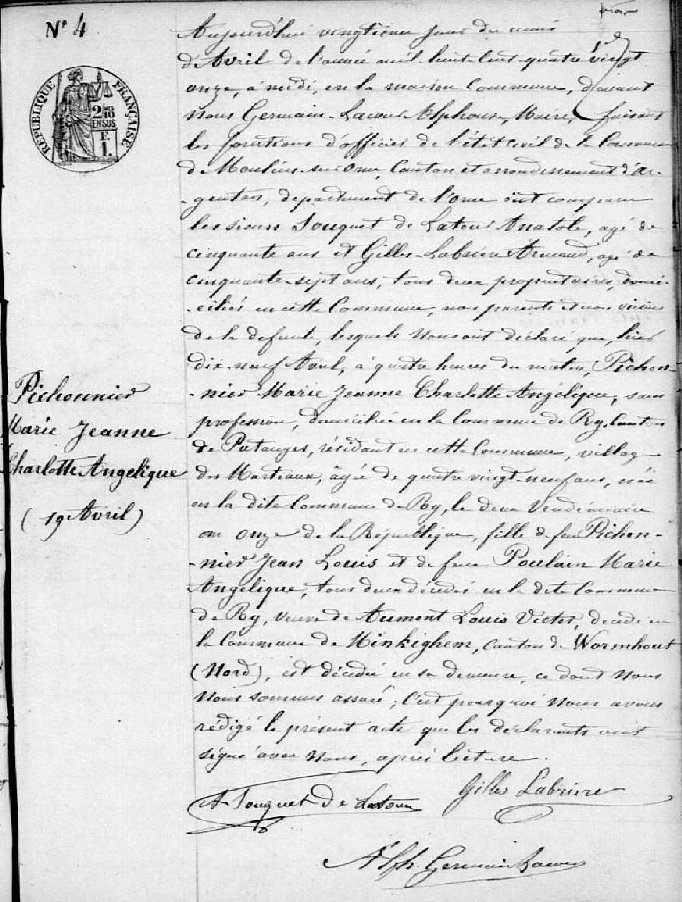 N° 4
RÉPUBLIQUE FRANÇAISE
Aujourd'hui vingtième jour du mois
d'Avril de l'année mil huit cent quatre vingt
onze, à midi, en la maison Commune, devant
Nous Germain-Lacour Alphonse, Maire, faisant
les fonctions d'officier de l'état civil de la Commune
de Moulins-sur-Orne Canton et arrondissement d'Ar-
-gentan, département de l'Orne ont comparu
les sieurs Touquet de Latour Anatole, âgé de
cinquante ans et Gilles-Labrière Armand, âgé de
cinquante-sept ans, tous deux propriétaires, domi-
-ciliés en cette Commune, non parents et non voisins
de la défunte, lesquels Nous ont déclaré que, hier
dix-neuf Avril, à quatre heures du matin, Pichon-
-nier Marie Jeanne Charlotte Angélique, sans
profession, domiciliée en la Commune de Ry, Canton
de Putanges, résidant en cette Commune, village
des Marteaux, âgée de quatre vingt-neuf ans, née
en la dite Commune de Ry, le deux Vendémiaire
an onze de la République, fille de feu Pichon-
-nier Jean Louis et de feue Poulain Marie
Angélique, tous deux décédés en la dite Commune
de Ry, veuve de Aumont Louis Victor, décédé en
la Commune de Hinkeghem, canton de Wormhout
(Nord), est décédée en sa demeure, ce dont Nous
Nous sommes assuré; C'est pourquoi Nous avons
rédigé le présent acte que les déclarants ont
signé avec Nous, après lecture.
Pichonnier
Marie Jeanne
Charlotte Angélique
(19 Avril)
A Touquet De Latour
Gilles Labriere
Alph Germain Lacour